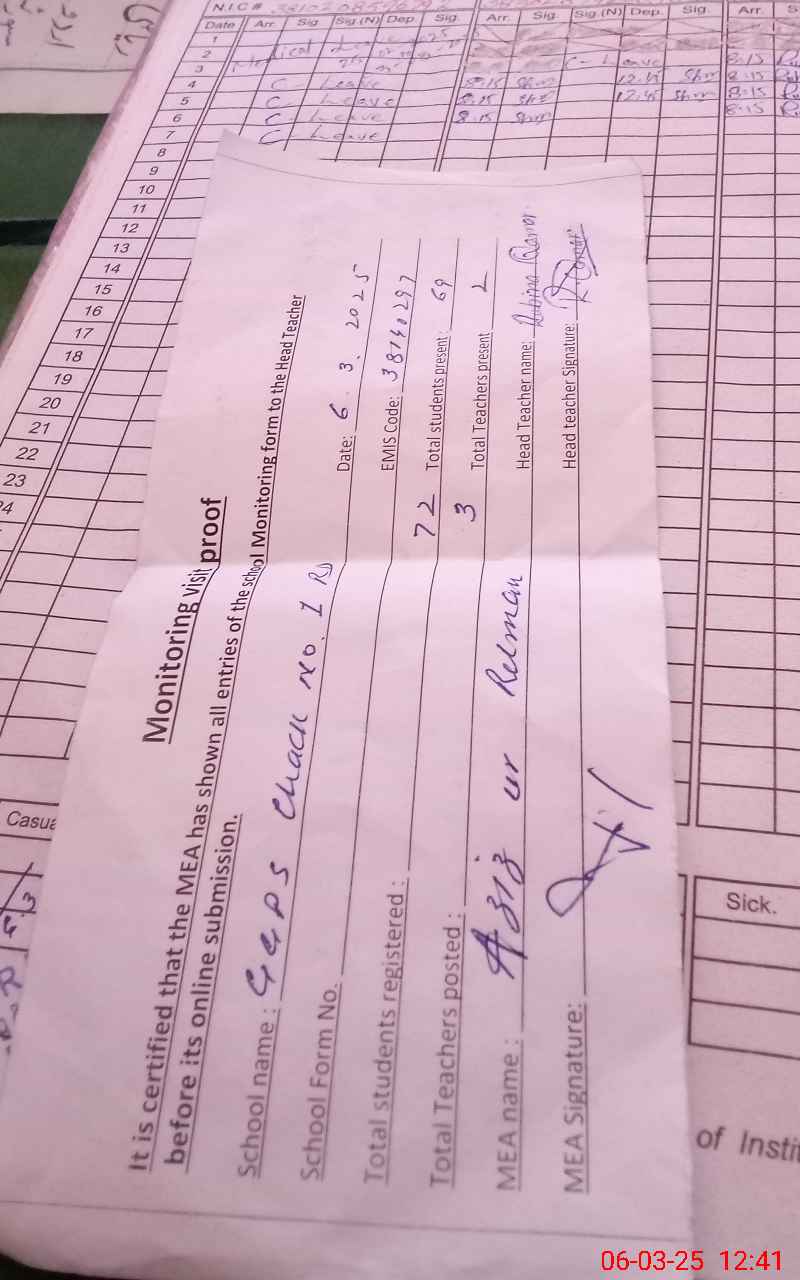 N.I.C #
Date Arr. Sig Sig.(N) Dep. Sig. Arr. Sig. Sig.(N) Dep. Sig. Arr.
1
2
3 Medical C - Leave 8:15
4 C - Leave 8:15 Shm 12:45 Shm 8:15
5 C - Leave 8:15 12:45 Shm 8:15
6 C - Leave 8:15 Shm 8:15
7 C - Leave
8
9
10
11
12
13
14
15
16
17
18
19
20
21
22
23
24
Monitoring visit proof
It is certified that the MEA has shown all entries of the school Monitoring form to the Head Teacher
before its online submission.
School name : GGPS Chack No. 1 RD Date: 6. 3. 2025
School Form No. EMIS Code:
Total students registered : 72 Total students present : 69
Total Teachers posted : 3 Total Teachers present 2
MEA name : Aziz ur Rehman Head Teacher name: Rubina
MEA Signature: Head teacher Signature:
Sick.
of Instit
06-03-25 12:41